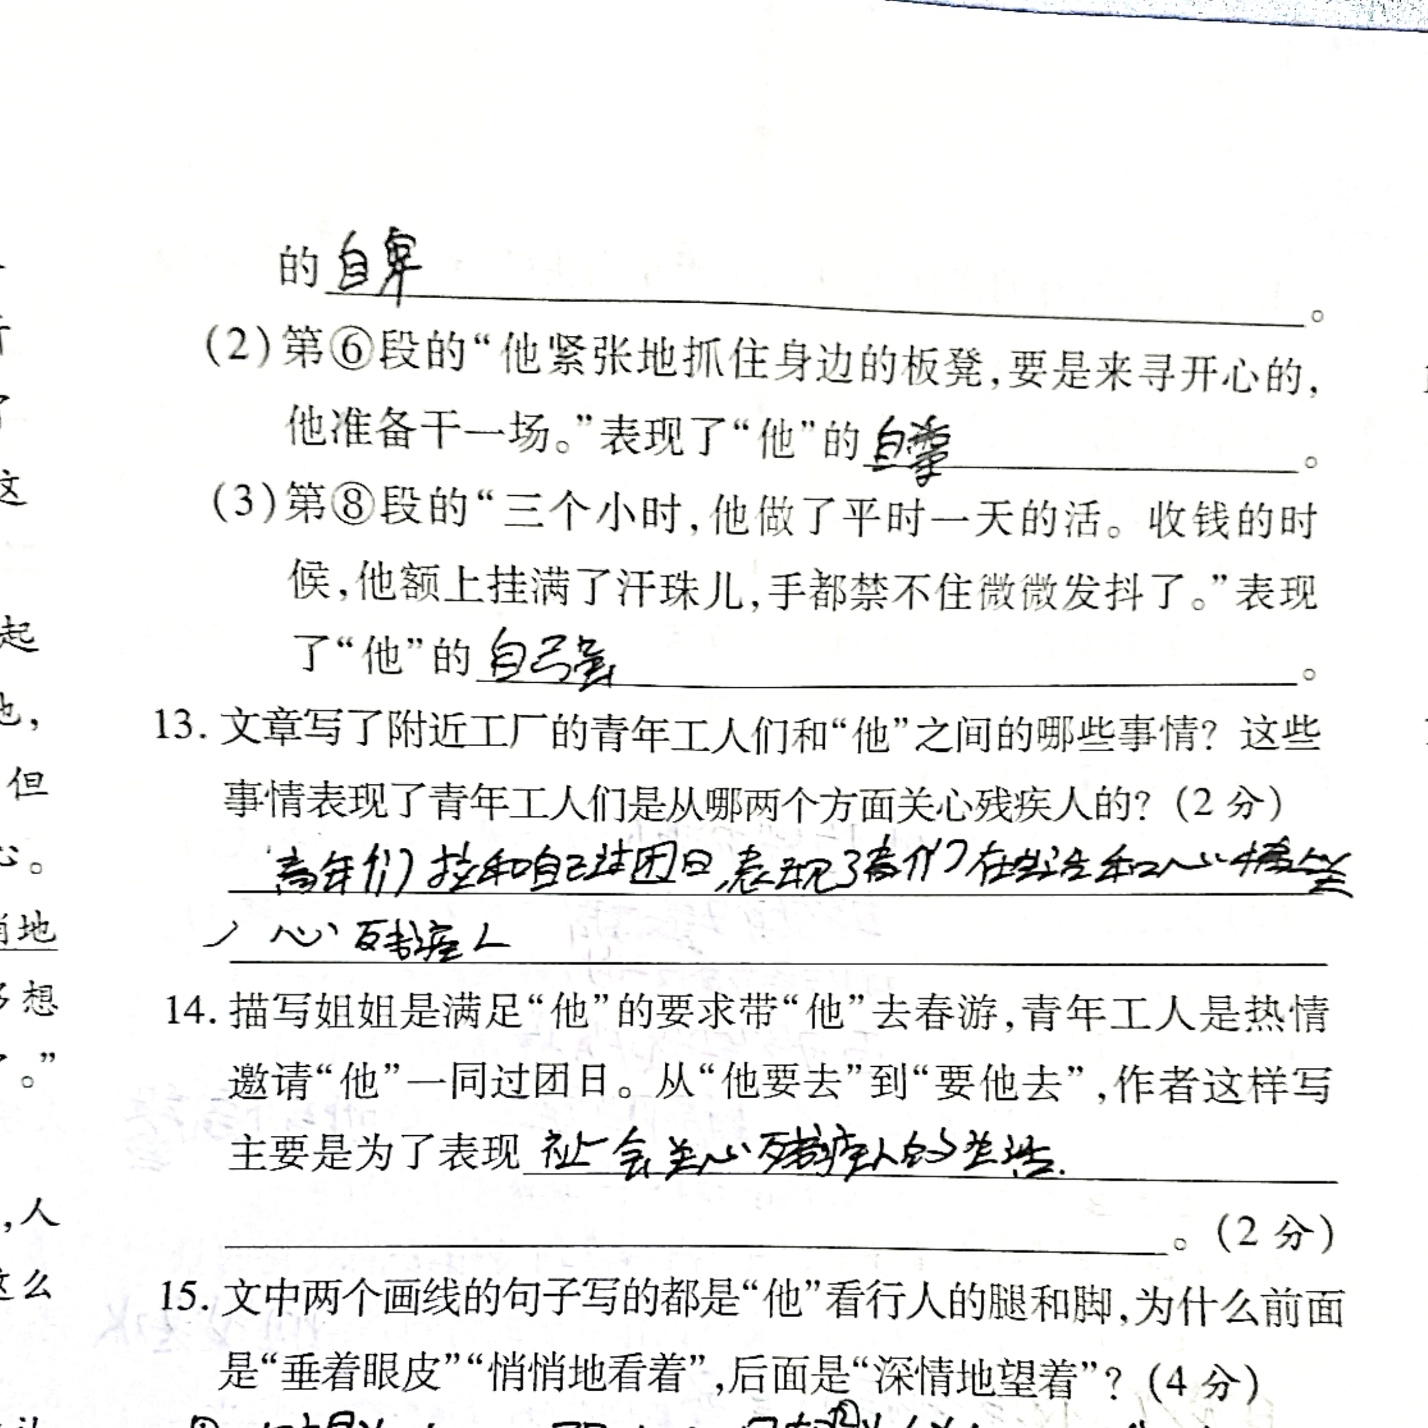 的自卑。
(2)第⑥段的“他紧张地抓住身边的板凳,要是来寻开心的,
他准备干一场。”表现了“他”的自尊。
(3)第⑧段的“三个小时,他做了平时一天的活。收钱的时
候,他额上挂满了汗珠儿,手都禁不住微微发抖了。”表现
了“他”的自己
13.文章写了附近工厂的青年工人们和“他”之间的哪些事情?这些
事情表现了青年工人们是从哪两个方面关心残疾人的?(2分)
青年们 和自己过团日,表现了青们在生活和心情上关
心残疾人
14.描写姐姐是满足“他”的要求带“他”去春游,青年工人是热情
邀请“他”一同过团日。从“他要去”到“要他去”,作者这样写
主要是为了表现社会关心残疾人的生活.
。(2分)
15.文中两个画线的句子写的都是“他”看行人的腿和脚,为什么前面
是“垂着眼皮”“悄悄地看着”,后面是“深情地望着”?(4分)
这
起
也,
但
心。
悄地
多想
了。”
,人
这么